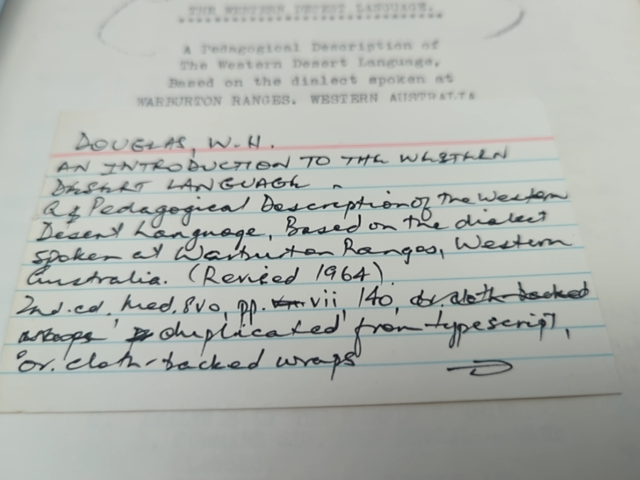 THE WESTERN DESERT LANGUAGE.
A Pedagogical Description of
The Western Desert Language,
Based on the dialect spoken at
WARBURTON RANGES, WESTERN AUSTRALIA
DOUGLAS, W.H.
AN INTRODUCTION TO THE WESTERN
DESERT LANGUAGE
Pedagogical Description of the Western
Desert Language, Based on the dialect
spoken at Warburton Ranges, Western
Australia. (Revised 1964)
2nd. ed. Med. 8vo, pp. vii, 140, or. cloth backed
wraps duplicated from typescript,
or. cloth-backed wraps